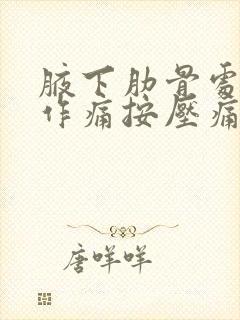 腋下肋骨處
作痛按壓痛
唐咩咩